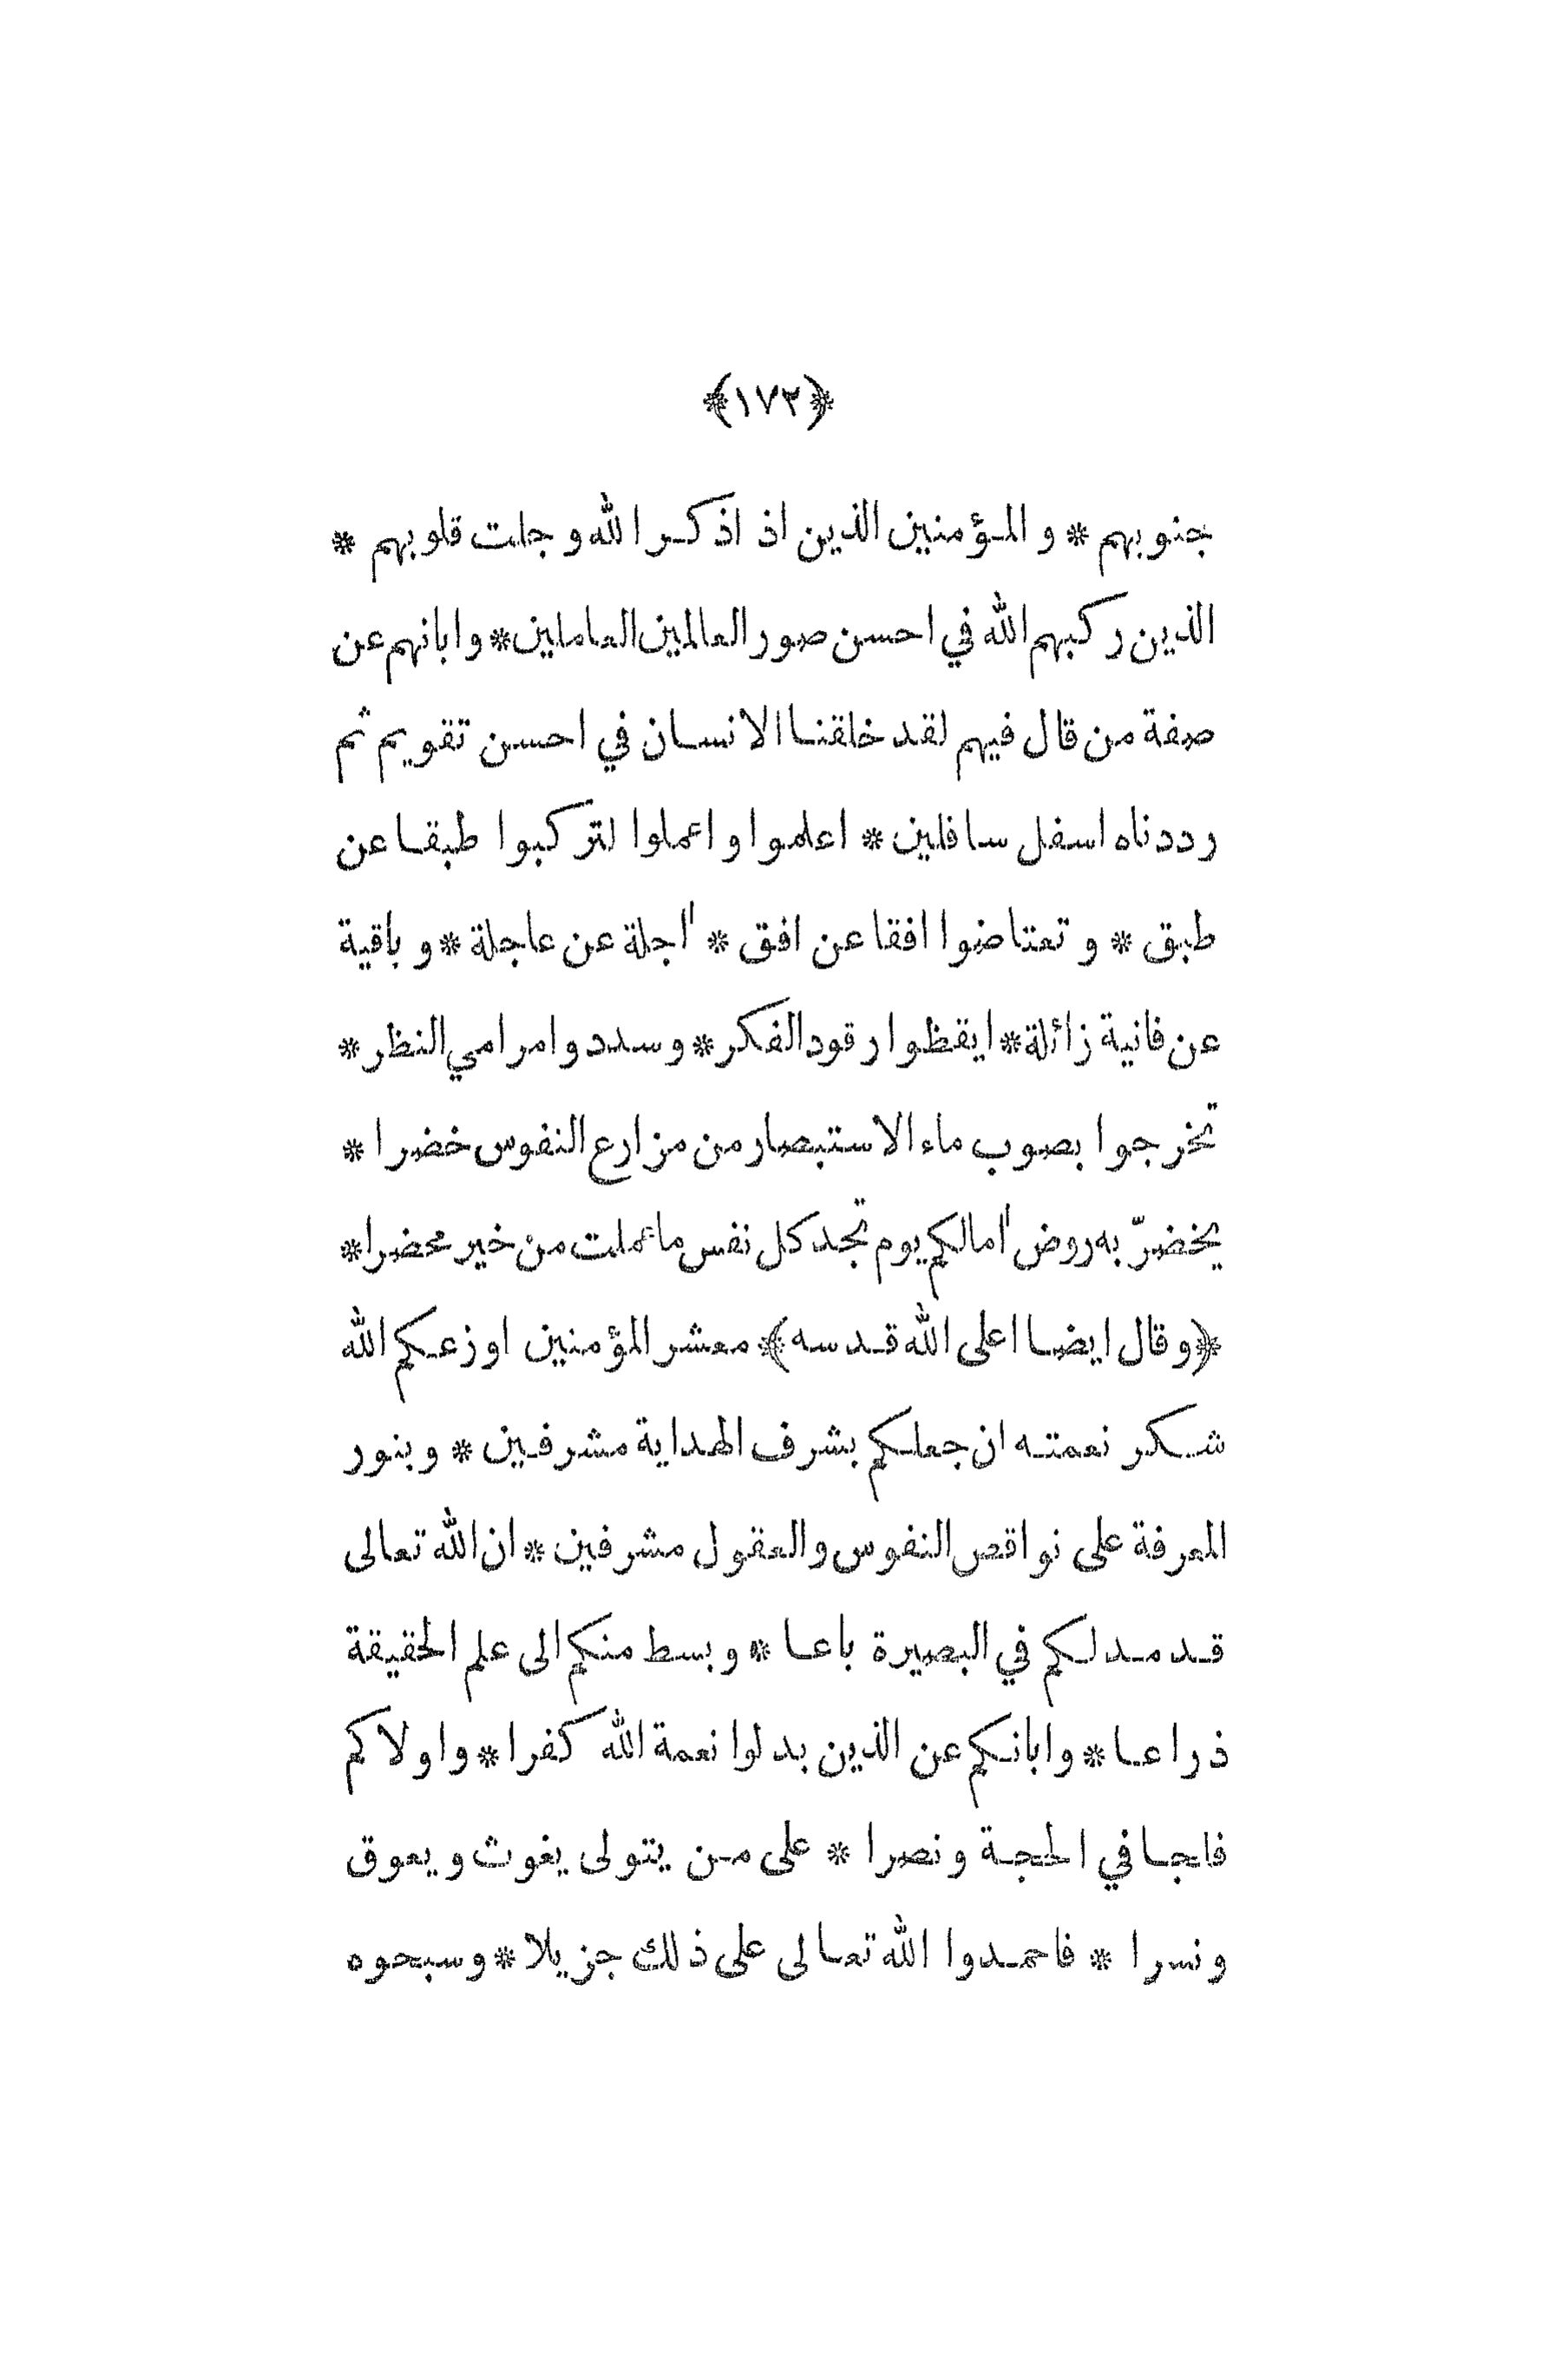 ﴿١٧٢﴾
جنوبهم * والمؤمنين الذين اذ اذكر الله وجلت قلوبهم *
الذين ركبهم الله في احسن صور العالمين العاملين * وابانهم عن
صفة من قال فيهم لقد خلقنا الانسان في احسن تقويم ثم
رددناه اسفل سافلين * اعلموا واعملوا لتركبوا طبقا عن
طبق * وتعتاضوا افقا عن افق * آجلة عن عاجلة * وباقية
عن فانية زائلة * ايقظوا رقود الفكر * وسددوا مرامي النظر *
تخرجوا بصوب ماء الاستبصار من مزارع النفوس خضرا *
يخضرّ به روض آمالكم يوم تجد كل نفس ما عملت من خير محضرا *
﴿وقال ايضا اعلى الله قدسه﴾ معشر المؤمنين اوزعكم الله
شكر نعمته ان جعلكم بشرف الهداية مشرفين * وبنور
المعرفة على نواقص النفوس والعقول مشرفين * ان الله تعالى
قد مد لكم في البصيرة باعا * وبسط منكم الى علم الحقيقة
ذراعا * وابانكم عن الذين بدلوا نعمة الله كفرا * واولاكم
فلجا في الحجة ونصرا * على من يتولى يغوث ويعوق
ونسرا * فاحمدوا الله تعالى على ذلك جزيلا * وسبحوه